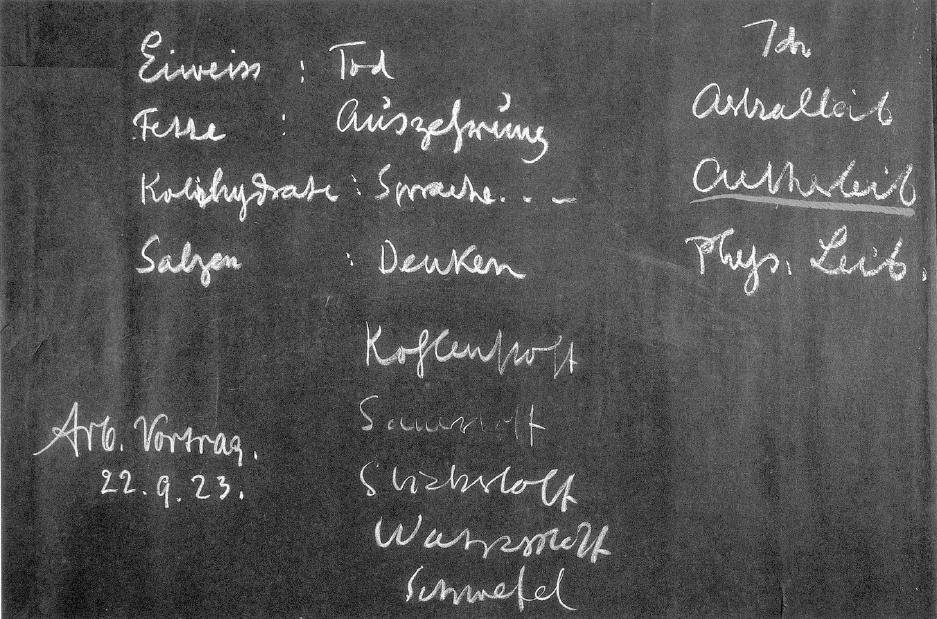 Eiweiss : Tod
Fette : Auszehrung
Kohlehydrate : Sprache. . . –
Salzen : Denken
Ich
Astralleib
Aetherleib
Phys. Leib.
Kohlenstoff
Sauerstoff
Stickstoff
Wasserstoff
Schwefel
Arb. Vortrag.
22.9.23.